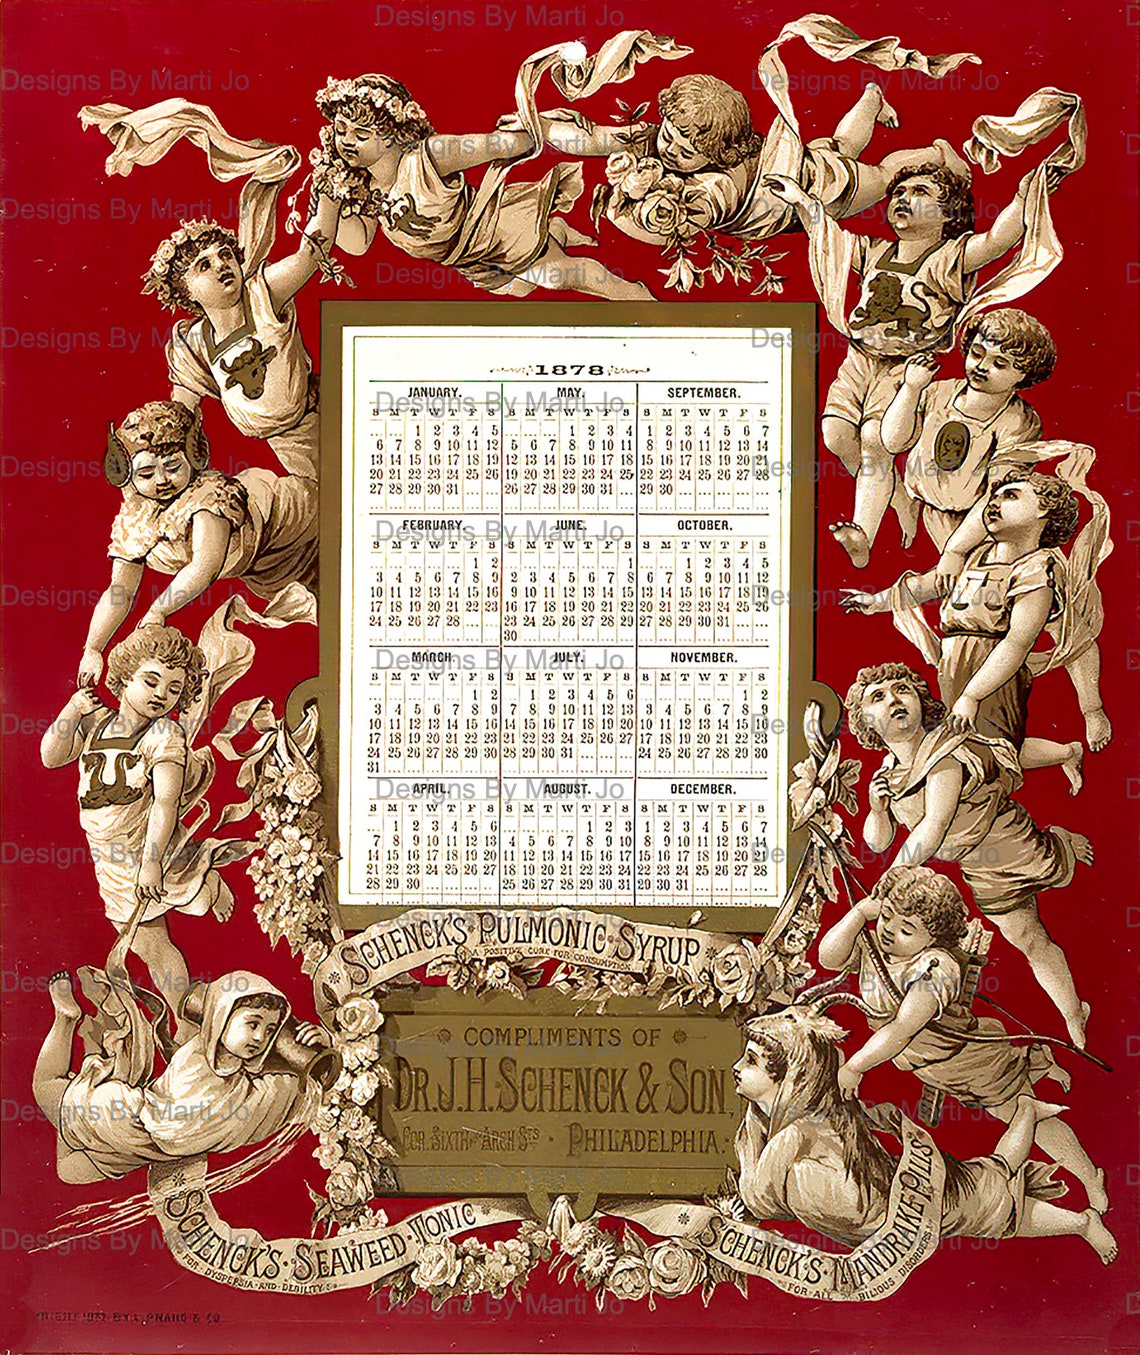 Designs By Marti Jo
1878
JANUARY.
S M T W T F S
1 2 3 4 5
6 7 8 9 10 11 12
13 14 15 16 17 18 19
20 21 22 23 24 25 26
27 28 29 30 31
FEBRUARY.
S M T W T F S
1 2
3 4 5 6 7 8 9
10 11 12 13 14 15 16
17 18 19 20 21 22 23
24 25 26 27 28
MARCH
S M T W T F S
1 2
3 4 5 6 7 8 9
10 11 12 13 14 15 16
17 18 19 20 21 22 23
24 25 26 27 28 29 30
31
APRIL.
S M T W T F S
1 2 3 4 5 6
7 8 9 10 11 12 13
14 15 16 17 18 19 20
21 22 23 24 25 26 27
28 29 30
MAY.
S M T W T F S
1 2 3 4
5 6 7 8 9 10 11
12 13 14 15 16 17 18
19 20 21 22 23 24 25
26 27 28 29 30 31
JUNE.
S M T W T F S
1
2 3 4 5 6 7 8
9 10 11 12 13 14 15
16 17 18 19 20 21 22
23 24 25 26 27 28 29
30
JULY.
S M T W T F S
1 2 3 4 5 6
7 8 9 10 11 12 13
14 15 16 17 18 19 20
21 22 23 24 25 26 27
28 29 30 31
AUGUST.
S M T W T F S
1 2 3
4 5 6 7 8 9 10
11 12 13 14 15 16 17
18 19 20 21 22 23 24
25 26 27 28 29 30 31
SEPTEMBER.
S M T W T F S
1 2 3 4 5 6 7
8 9 10 11 12 13 14
15 16 17 18 19 20 21
22 23 24 25 26 27 28
29 30
OCTOBER.
S M T W T F S
1 2 3 4 5
6 7 8 9 10 11 12
13 14 15 16 17 18 19
20 21 22 23 24 25 26
27 28 29 30 31
NOVEMBER.
S M T W T F S
1 2
3 4 5 6 7 8 9
10 11 12 13 14 15 16
17 18 19 20 21 22 23
24 25 26 27 28 29 30
DECEMBER.
S M T W T F S
1 2 3 4 5 6 7
8 9 10 11 12 13 14
15 16 17 18 19 20 21
22 23 24 25 26 27 28
29 30 31
SCHENCK'S · PULMONIC · SYRUP
A POSITIVE CURE FOR CONSUMPTION
COMPLIMENTS OF
DR. J. H. SCHENCK & SON,
COR. SIXTH AND ARCH STS · PHILADELPHIA.
SCHENCK'S · SEAWEED · TONIC
FOR DYSPEPSIA AND DEBILITY
SCHENCK'S · MANDRAKE PILLS
FOR ALL BILIOUS DISORDERS
BY L. PRANG & CO.